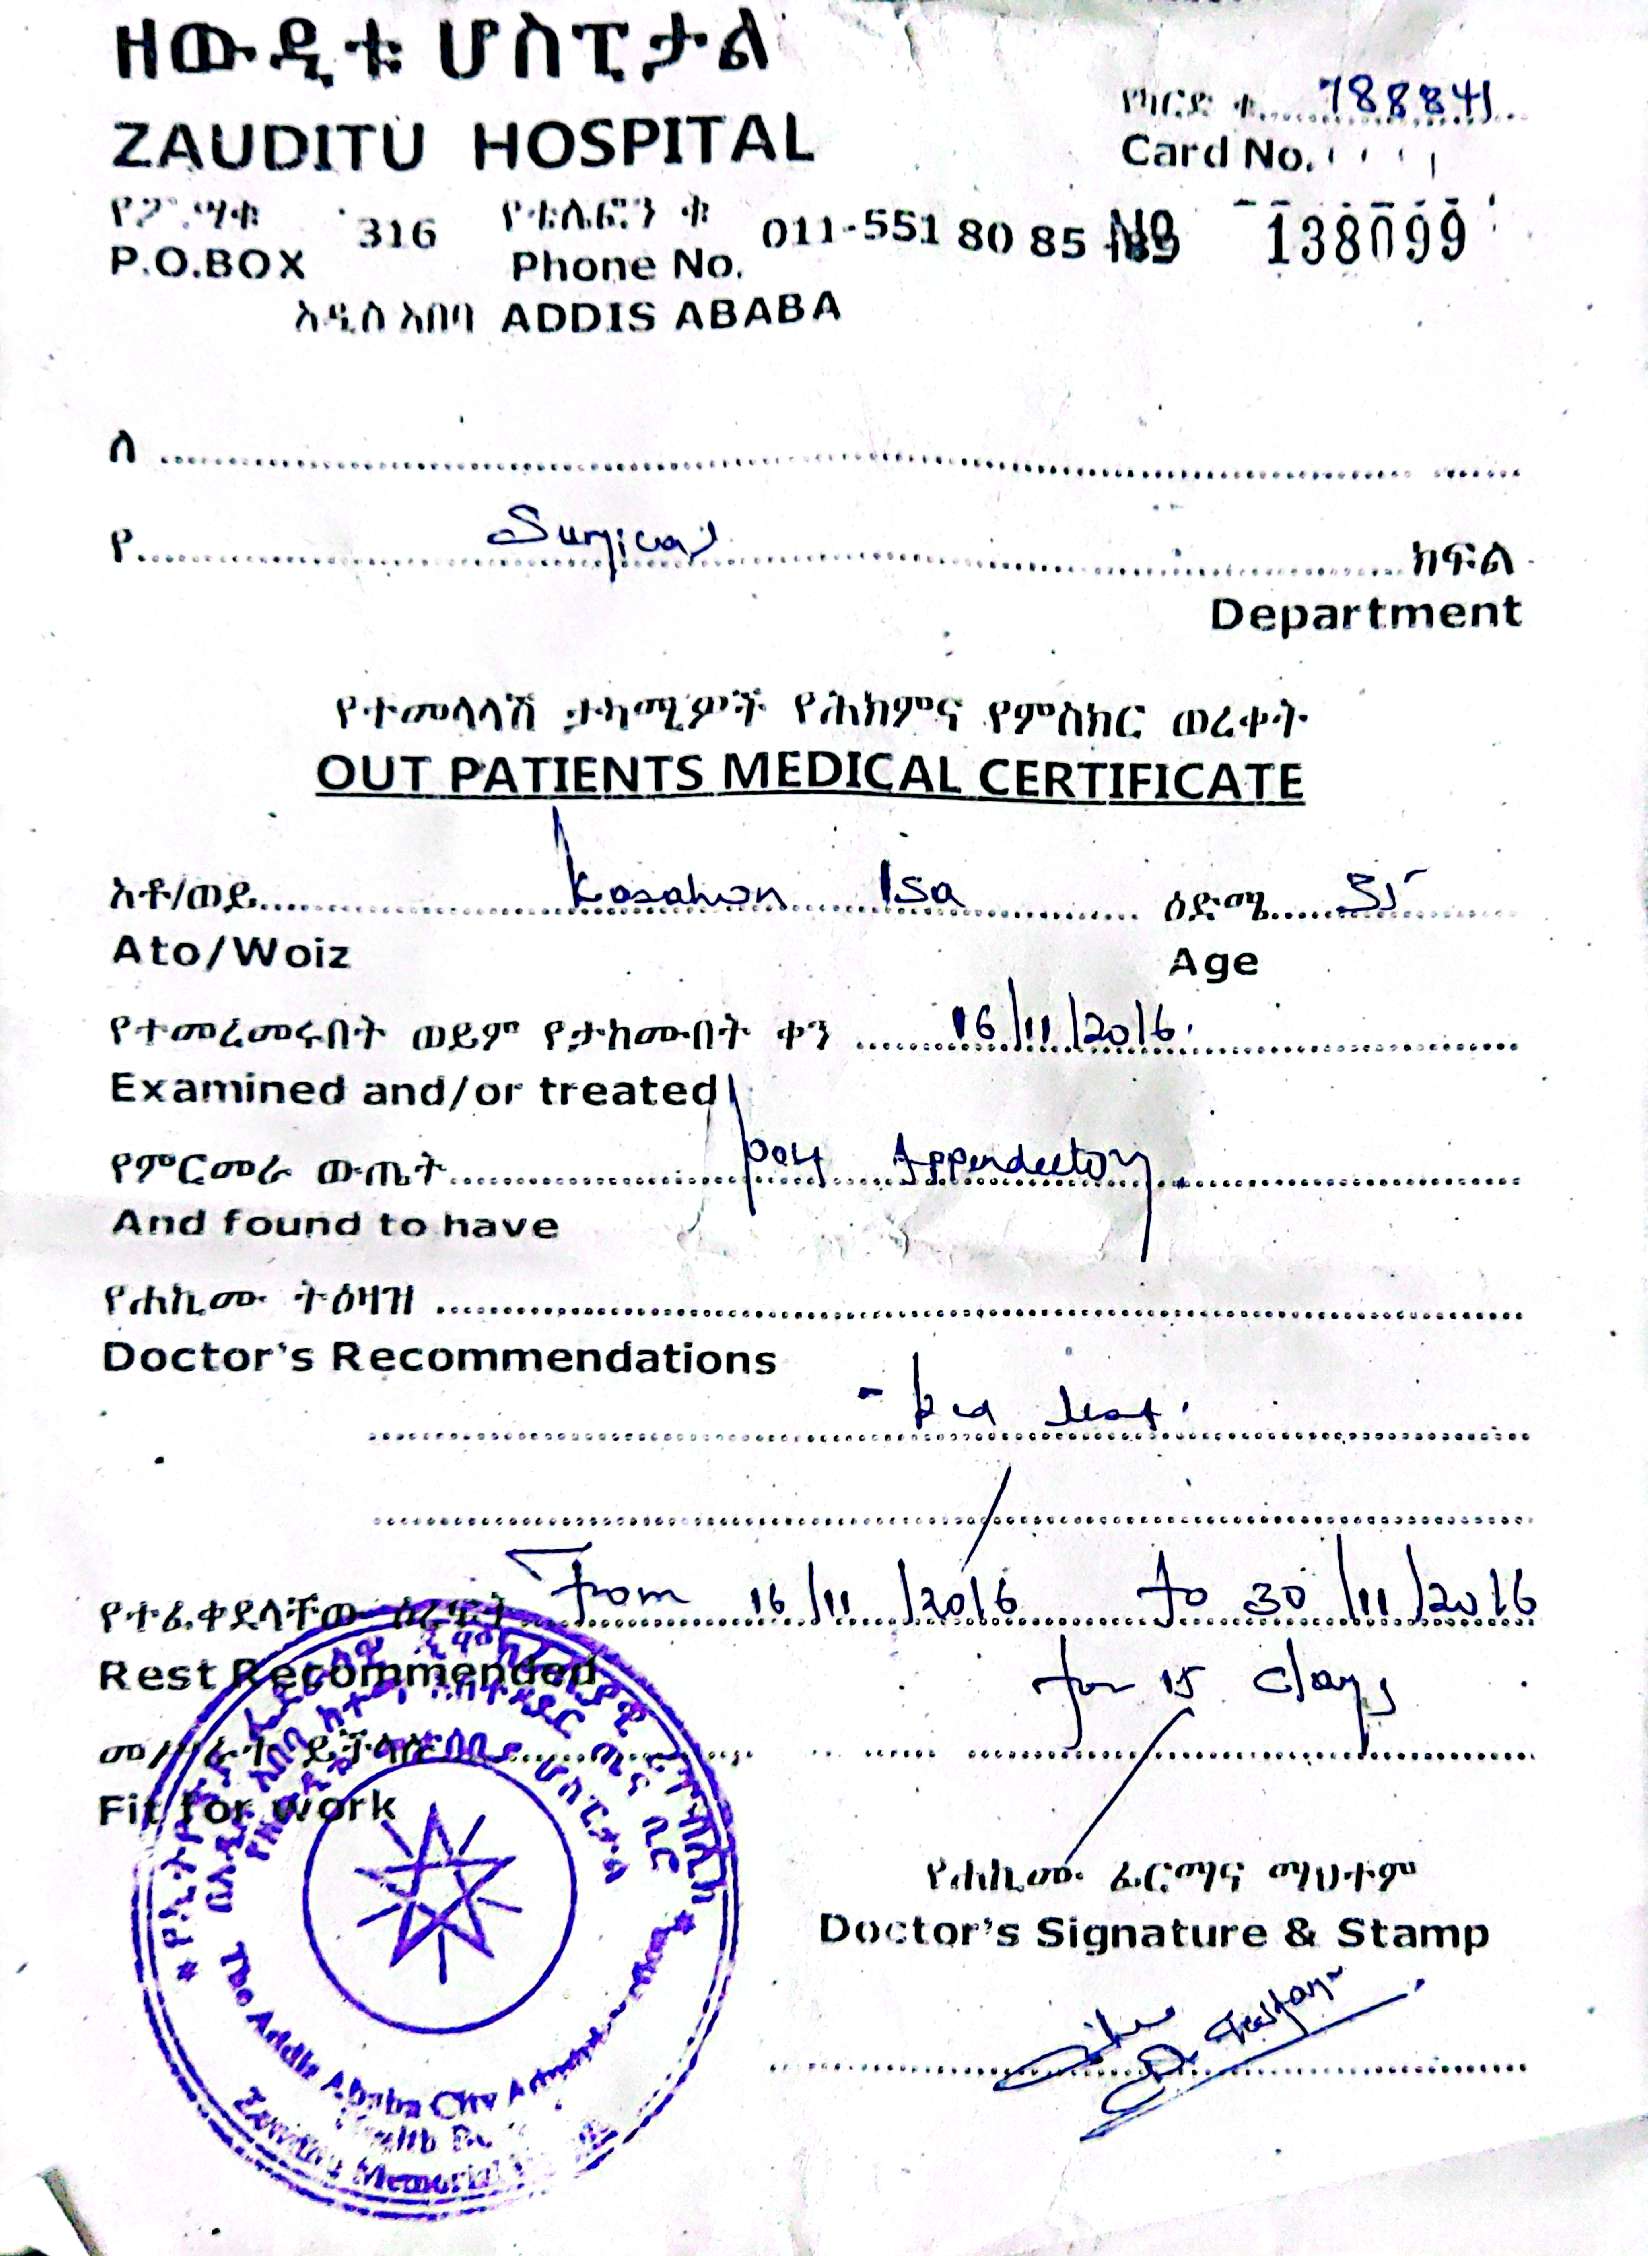 ዘውዲቱ ሆስፒታል
ZAUDITU HOSPITAL
የካርድ ቁ. 788841
Card No.
የፖ.ሣ.ቁ 316 የቴሌፎን ቁ 011-551 80 85
P.O.BOX Phone No.
No 138099
አዲስ አበባ ADDIS ABABA
ለ
የ Surgical ክፍል
Department
የተመላላሽ ታካሚዎች የሕክምና የምስክር ወረቀት
OUT PATIENTS MEDICAL CERTIFICATE
አቶ/ወይ Kasahun Isa ዕድሜ 35
Ato/Woiz Age
የተመረመሩበት ወይም የታከሙበት ቀን 16/11/2016.
Examined and/or treated
የምርመራ ውጤት Appendectomy
And found to have
የሐኪሙ ትዕዛዝ
Doctor's Recommendations
- rest.
የተፈቀደላቸው ዕረፍት From 16/11/2016 to 30/11/2016
Rest Recommended for 15 days
መሥራት ይችላሉ
Fit for work
የሐኪሙ ፊርማና ማህተም
Doctor's Signature & Stamp
The Addis Ababa City
Health
Zewditu Memorial